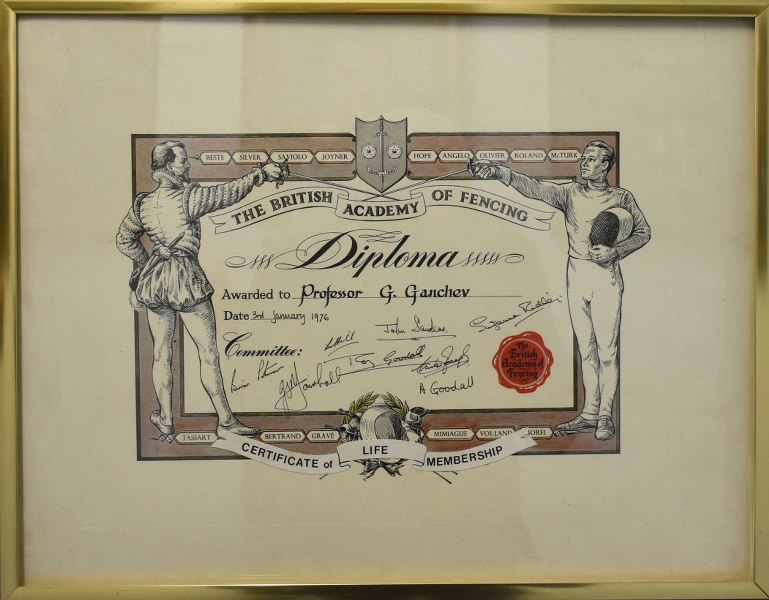 BESTE SILVER SAVIOLO JOYNER HOPE ANGELO OLIVIER ROLAND McTURK
THE BRITISH ACADEMY OF FENCING
Diploma
Awarded to Professor G. Ganchev
Date 3rd January 1976
Committee:
Roy Goodall
A Goodall
The
British
Academy of
Fencing
TASSART BERTRAND GRAVE MIMIAGUE VOLLAND JOREL
CERTIFICATE of LIFE MEMBERSHIP